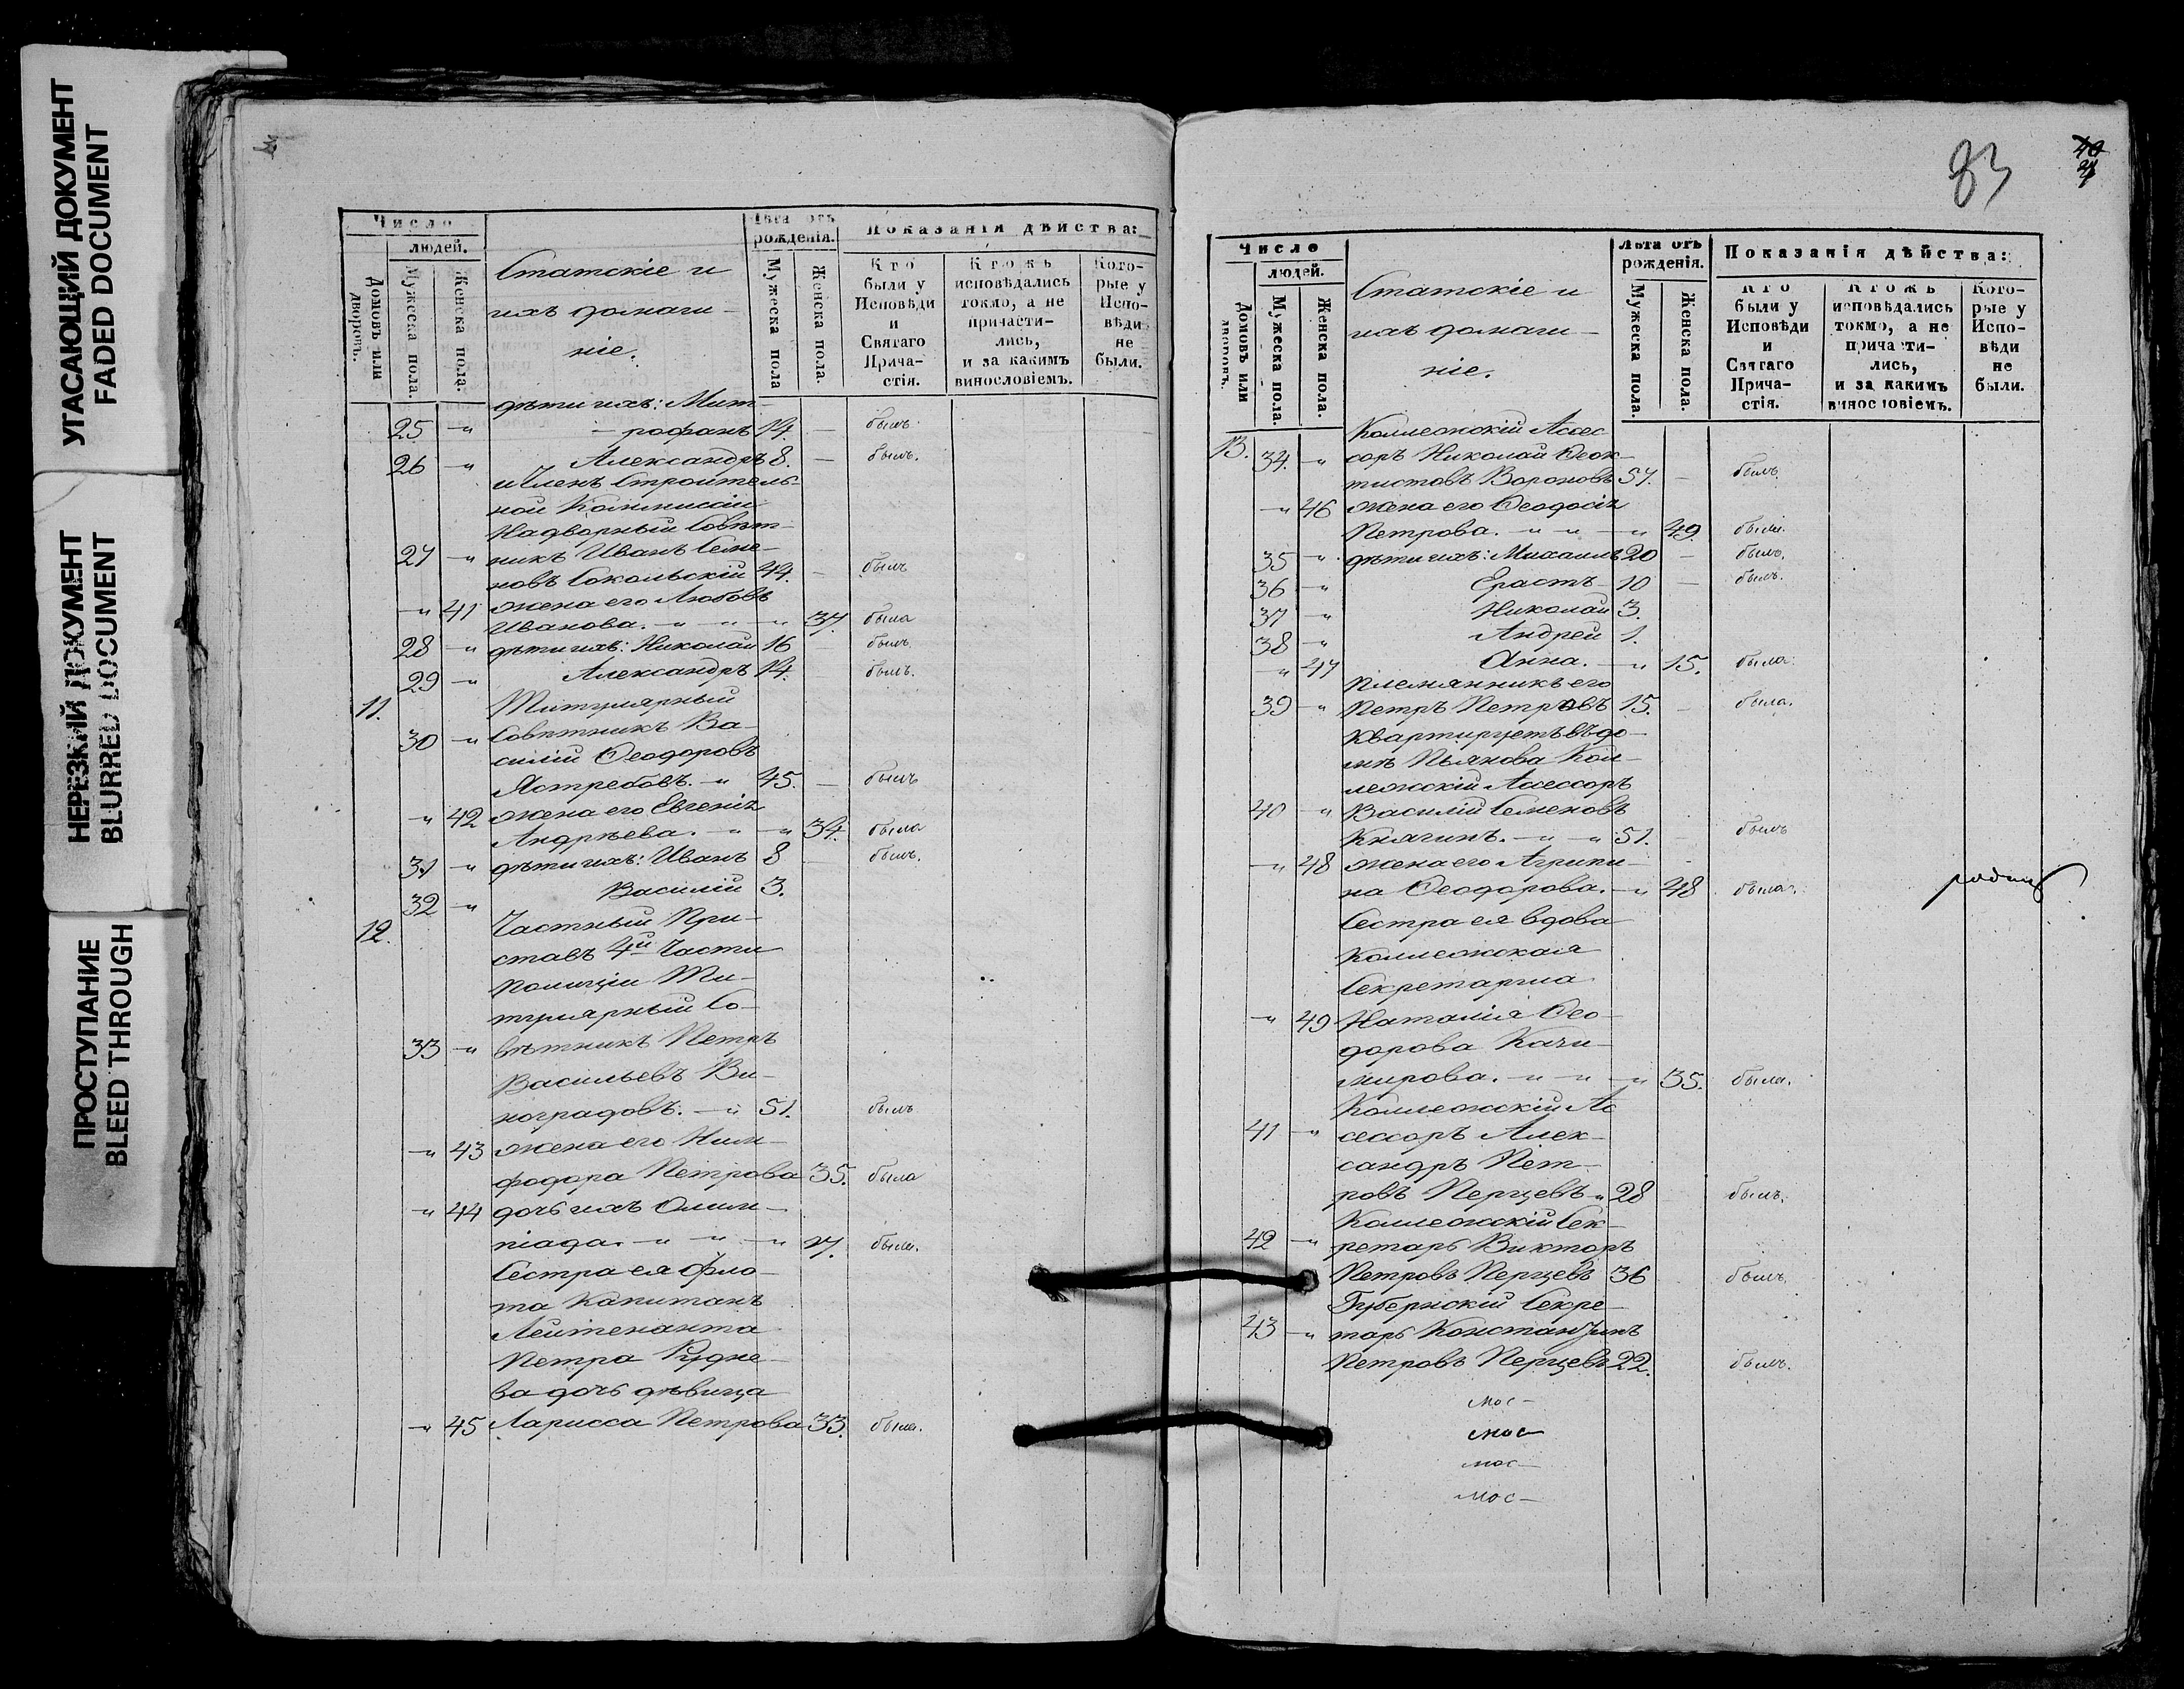 УГАСАЮЩИЙ ДОКУМЕНТ
FADED DOCUMENT
НЕРЕЗКИЙ ДОКУМЕНТ
BLURRED DOCUMENT
ПРОСТУПАНИЕ
BLEED THROUGH
Число
людей.
Домовъ или дворовъ.
Мужеска пола.
Женска пола.
Статскіе и
ихъ домаш-
ніе.
Лѣта отъ рожденія.
Мужеска пола
Женска пола.
Показанія дѣйства:
Кто были у Исповѣди и Святаго Прича-стія.
Ктожъ исповѣдались токмо, а не причасти-лись, и за какимъ винословіемъ.
Кото-рые у Испо-вѣди не были.
дѣти ихъ: Мит-
25 " -рофанъ 14. — былъ.
26 " Александръ 8. — былъ.
и Членъ Строитель-
ной Коммиссіи
Надворный Совѣт-
27 " никъ Иванъ Семе-
новъ Сокольскій 44. — былъ
" 41 жена его Любовь
Иванова. " " " 37. была
28 " дѣти ихъ: Николай 16 былъ.
29 " Александръ 14. былъ.
11. Титулярный
30 " Совѣтникъ Ва-
силій Ѳеодоровъ
Ястребовъ. " 45. — былъ
" 42 жена его Евгенія
Андрѣева. " " 34. была
31 " дѣти ихъ: Иванъ 8 — былъ.
32 " Василій 3.
12. Частный При-
ставъ 4й Части
Полиціи Ти-
тулярный Со-
33 " вѣтникъ Петръ
Васильевъ Ви-
ноградовъ. " 51. былъ
" 43 жена его Ним-
фодора Петрова 35. была
" 44 дочь ихъ Олим-
піада. " " " 17. была.
Сестра ея Фло-
та Капитанъ
Лейтенанта
Петра Рудне-
ва дочь дѣвица
" 45 Ларисса Петрова 33. была.
83
40
Число
людей.
Домовъ или дворовъ.
Мужеска пола.
Женска пола.
Статскіе и
ихъ домаш-
ніе.
Лѣта отъ рожденія.
Мужеска пола.
Женска пола.
Показанія дѣйства:
Кто были у Исповѣди и Святаго Прича-стія.
Ктожъ исповѣдались токмо, а не причасти-лись, и за какимъ винословіемъ.
Кото-рые у Испо-вѣди не были.
Коллежскій Ассес
13. 34. " соръ Николай Ѳеок-
тистовъ Вороновъ 57. — былъ
" 46 жена его Ѳеодосія
Петрова. " " " 49 была.
35 " дѣти ихъ: Михаилъ 20 — былъ.
36 " Ерастъ 10 — былъ.
37 " Николай 3.
38 " Андрей 1.
" 47 Анна. " 15. была.
Племянникъ его
39 " Петръ Петровъ 15. — была.
Квартируетъ въ до-
мѣ Пьянова Кол-
лежскій Ассессоръ
40 " Василій Семеновъ
Княгинъ. " " 51. былъ
" 48 жена его Агрипи-
на Ѳеодорова. " 48 была.
Сестра ея вдова
Коллежская
Секретарша
" 49 Наталія Ѳео-
дорова Качи-
мирова. " " " 35. была.
Коллежскій Ас
41 " сессоръ Алек-
сандръ Пет-
ровъ Перцевъ " 28 былъ.
Коллежскій Сек-
42 " ретарь Викторъ
Петровъ Перцевъ 36 былъ.
Губернскій Секре-
43 " тарь Константинъ
Петровъ Перцевъ 22. былъ.
мос-
мос
мос-
мос-